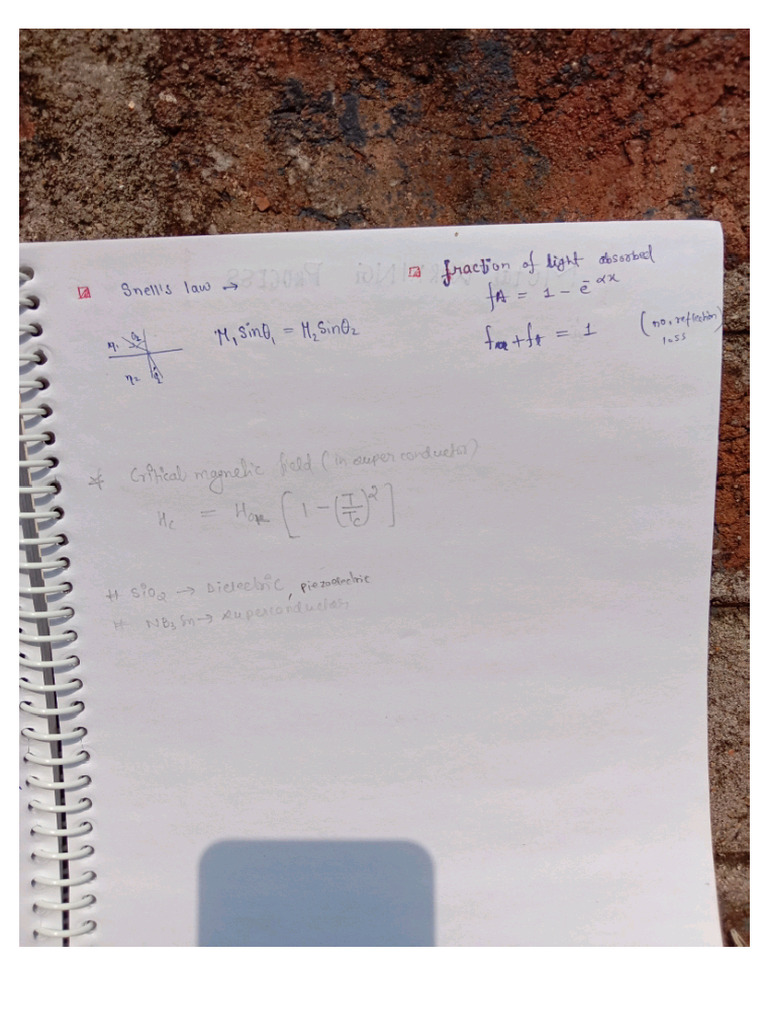 Snell's law →
η1 θ1
η2 θ2
μ1 sinθ1 = μ2 sinθ2
fraction of light absorbed
fA = 1 - e^-αx
+ ft = 1 (no. reflection loss)
* Critical magnetic field (in super conductor)
Hc = [1 - (T/Tc)^2]
# SiO2 → Dielectric, piezoelectric
# NB3Sn → superconductor